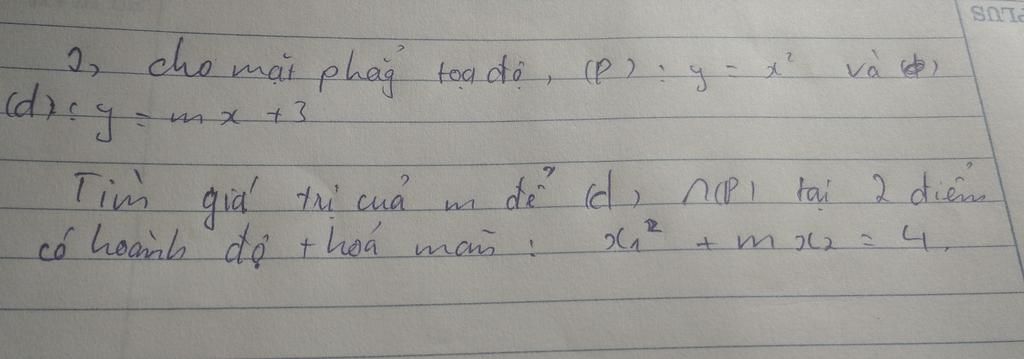 2, cho mặt phẳg tọa độ, (P) : y = x² và
(d) : y = mx + 3
Tìm giá trị cuả m để (d) ∩(P) tại 2 điểm
có hoành độ thoả mãn : x₁² + mx₂ = 4.
PLUS